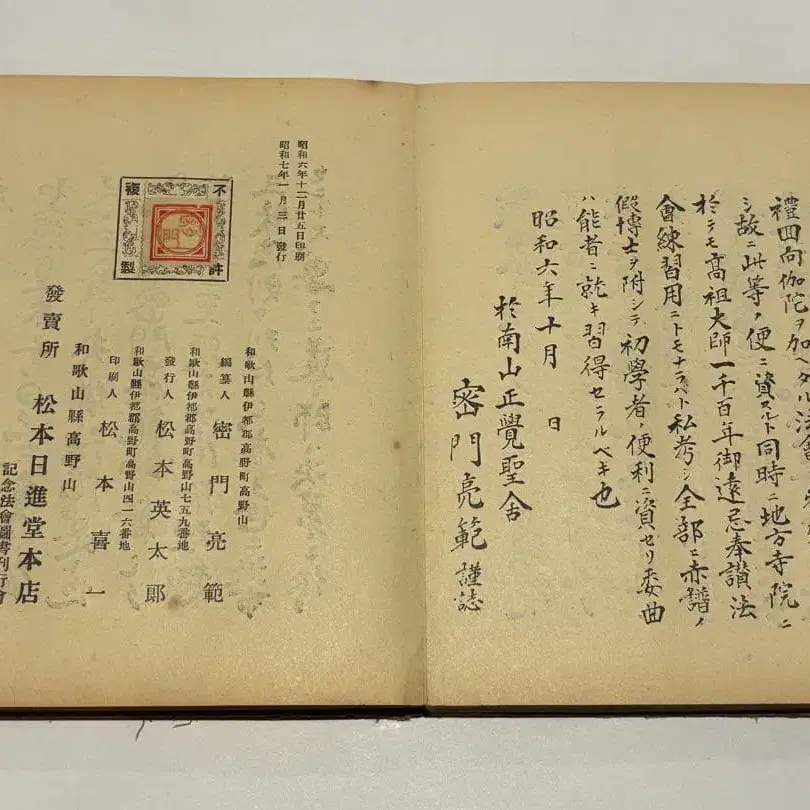 禮四向伽陀ヲ加ヘタル法會
シ故ニ此等ノ便ニ資スルト同時ニ地方寺院ニ
於テモ高祖大師一千百年御遠忌奉讃法
會練習用ニトモナラバト私考シ全部ニ赤譜ノ
假博士ヲ附シテ初學者ノ便利ニ資セリ委曲
ハ能者ニ就キ習得セラルベキ也
昭和六年十月 日
於南山正覺聖舍
密門亮範謹誌
昭和六年十二月廿五日印刷
昭和七年一月三日發行
不許
複製
和歌山縣伊都郡高野町高野山
編纂人 密門亮範
和歌山縣伊都郡高野町高野山七五九番地
發行人 松本英太郎
和歌山縣伊都郡高野町高野山四一六番地
印刷人 松本喜一
和歌山縣高野山
發賣所 松本日進堂本店
記念法會圖書刊行會